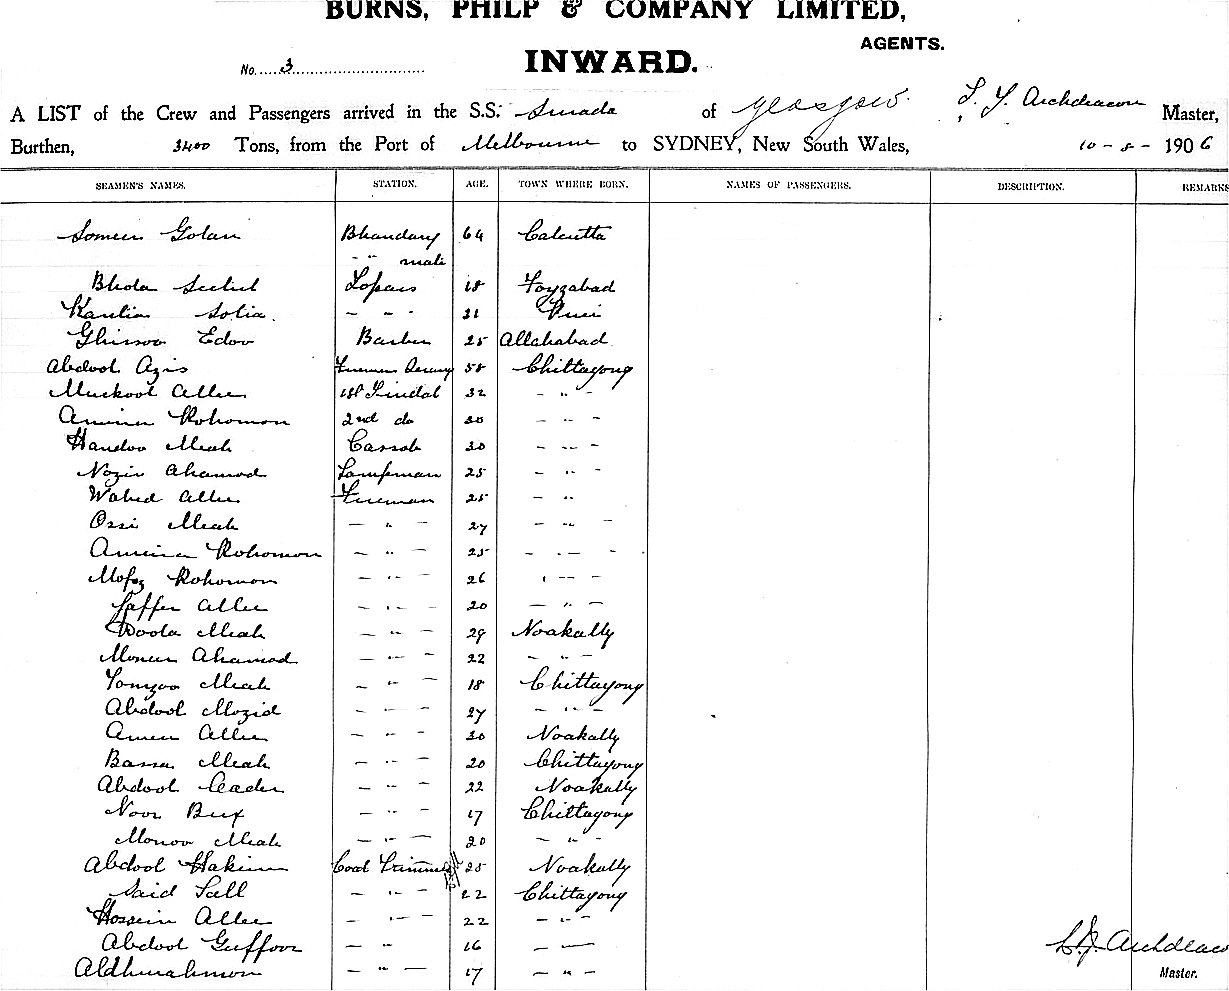 BURNS, PHILP & COMPANY LIMITED,
AGENTS.
No. 3
INWARD.
A LIST of the Crew and Passengers arrived in the S.S. of Glasgow. Archdeacon Master,
Burthen, 3400 Tons, from the Port of Melbourne to SYDNEY, New South Wales, 10 - 8 - 1906
SEAMEN'S NAMES. STATION. AGE. TOWN WHERE BORN. NAMES OF PASSENGERS. DESCRIPTION. REMARKS
Golan Bhandary 64 Calcutta
- " mate
Bhola Topass 18 Foyzabad
- - - 21
Edoo Barber 25 Allahabad
Abdool Azis Fireman 58 Chittagong
Allee 1st Tindal 32 - " -
Rohomon 2nd do 30 - " -
Meah Cassab 30 - " -
Nozir Ahamod Lampman 25 - " -
Wahed Allee Fireman 25 - "
Ossi Meah - " - 27 - " -
Rohomon - " - 25 - " -
Mofez Rohomon - " - 26 " - -
Jaffer Allee - " - 20 - " -
Doola Meah - " - 29 Noakally
Ahamod - " - 22 - " -
Meah - " - 18 Chittagong
Abdool Mozid - " - 27 - " -
Allee - " - 30 Noakally
Bassa Meah - " - 20 Chittagong
Abdool Cader - " - 22 Noakally
Noor Bux - " - 17 Chittagong
Monoo Meah - " - 20 - " -
Abdool Hakim Coal Trimmer 25 Noakally
Said - " - 22 Chittagong
Hossein Allee - " - 22 - " -
Abdool Guffoor - " 16 - -
- " - 17 - " -
Archdeacon
Master.